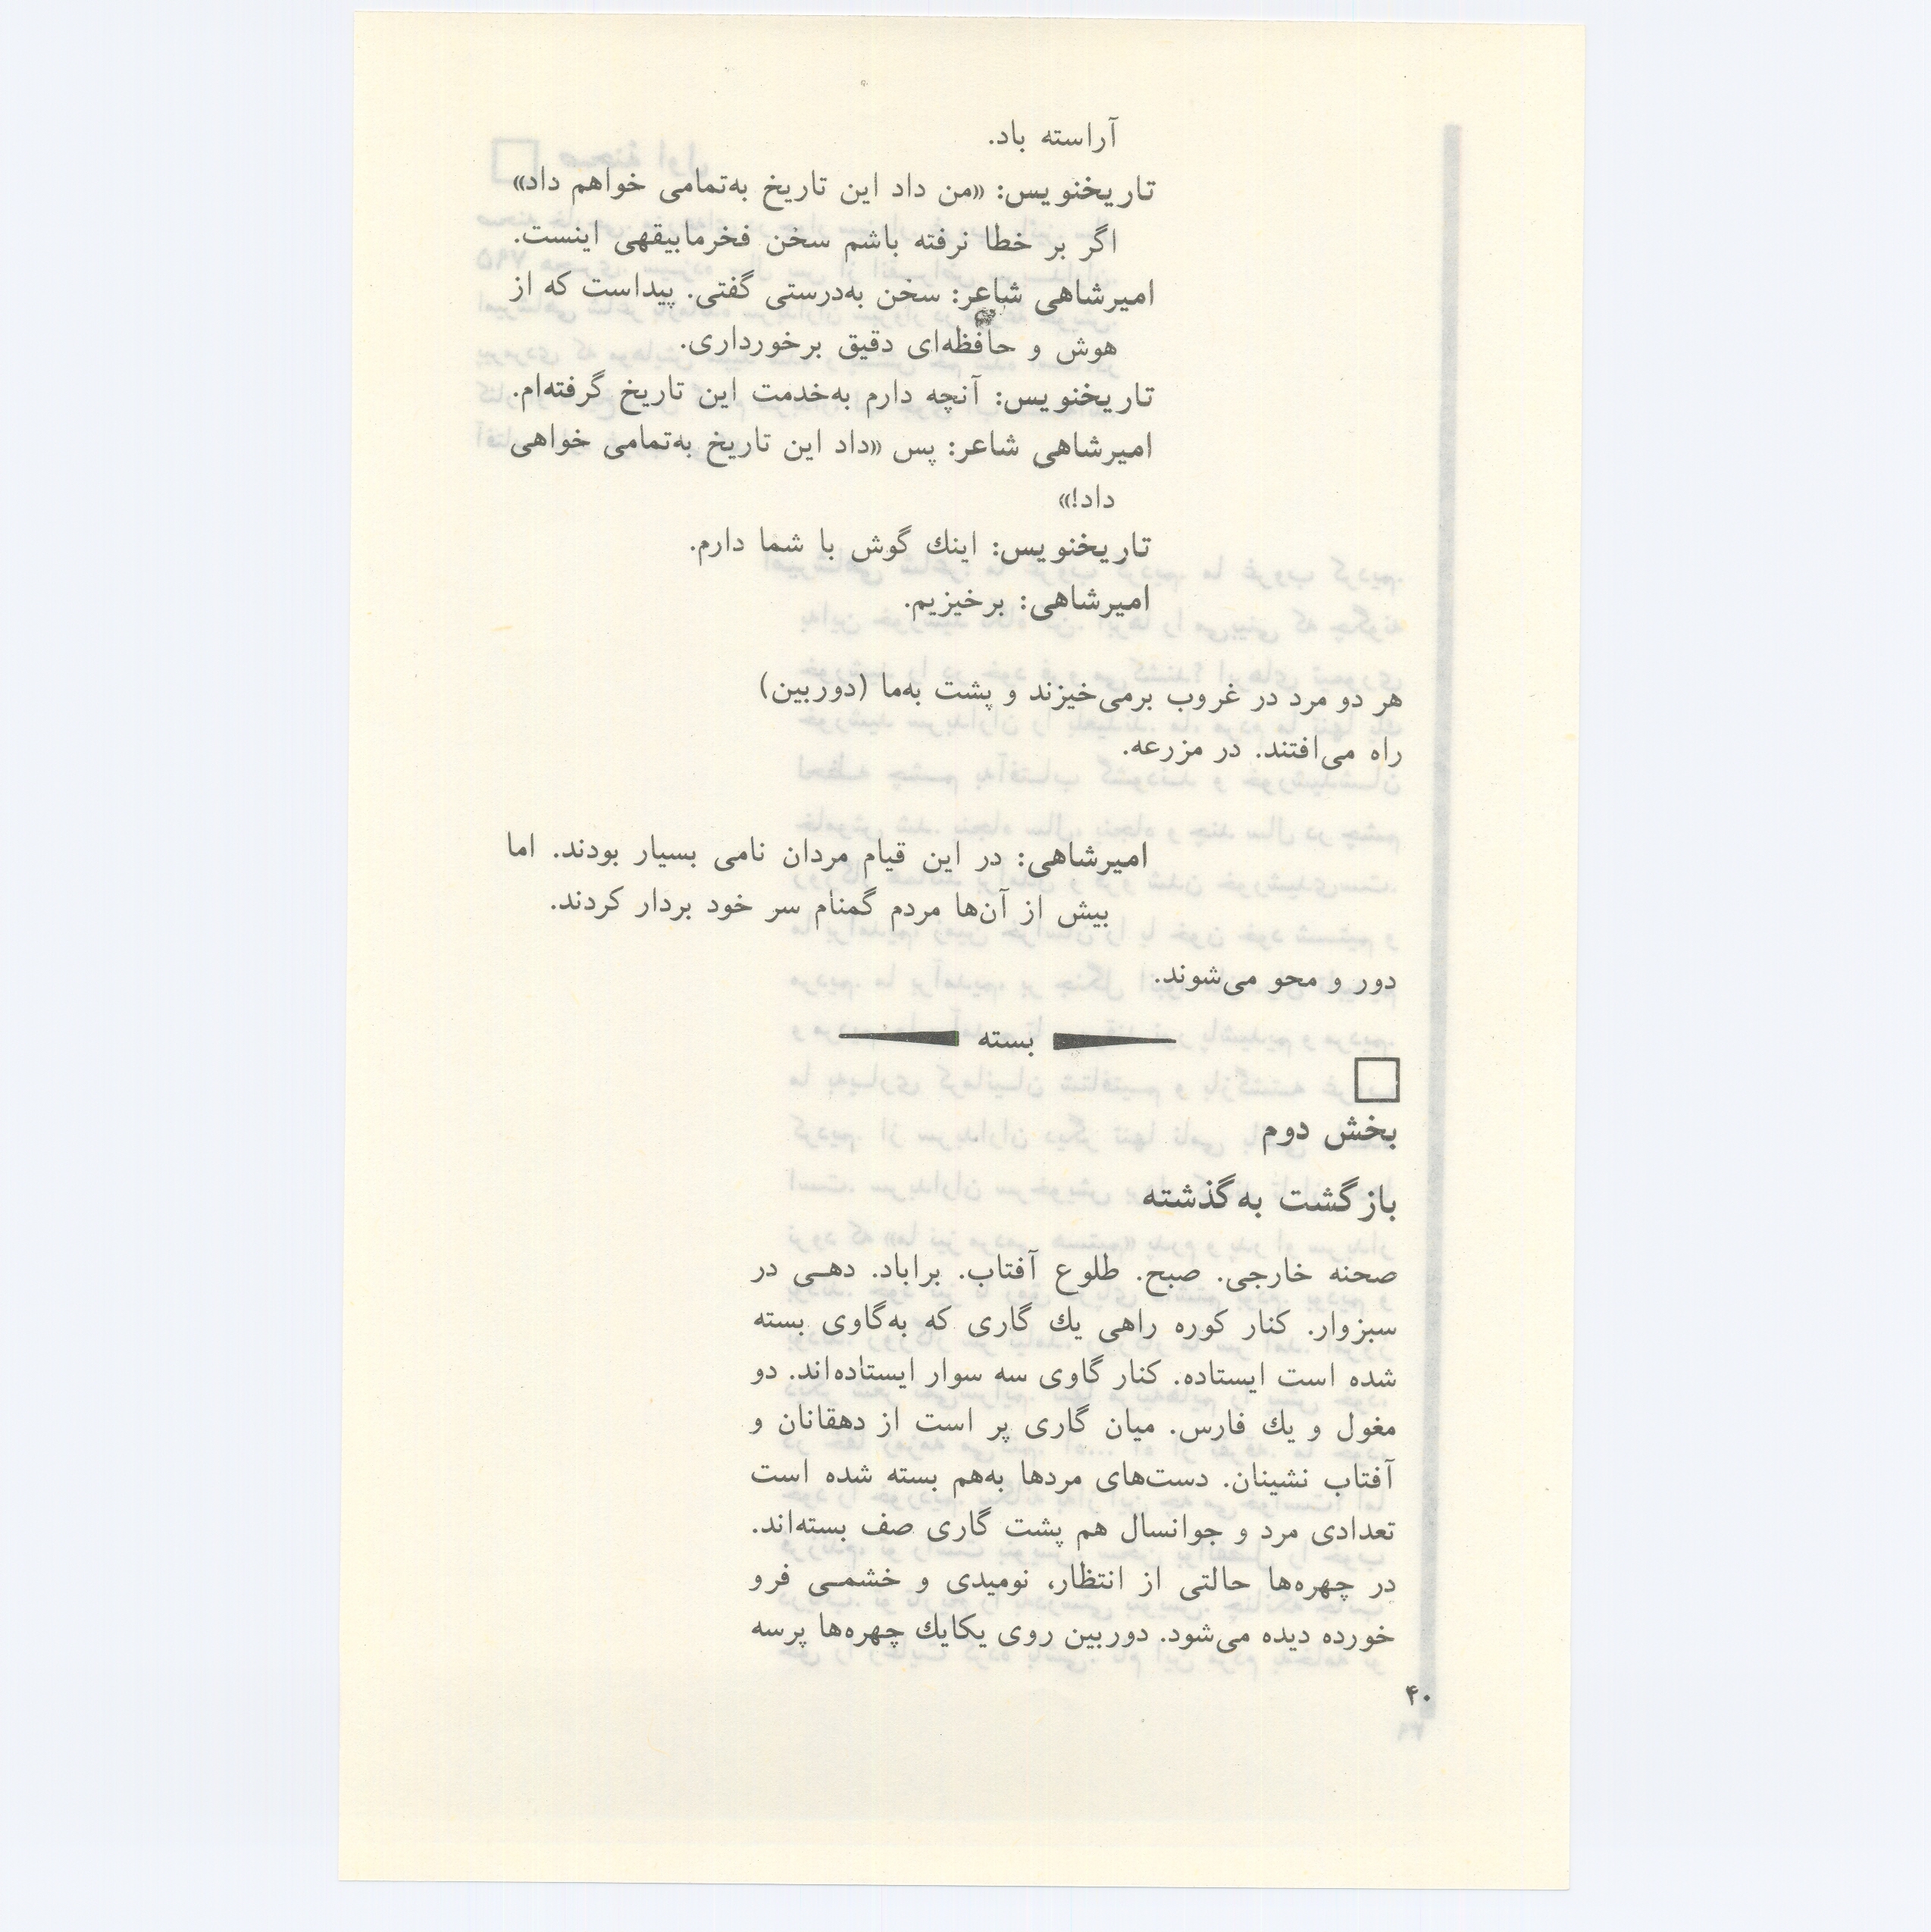 آراسته باد.
تاریخنویس: «من داد این تاریخ به‌تمامی خواهم داد»
اگر بر خطا نرفته باشم سخن فخرمابیقهی اینست.
امیرشاهی شاعر: سخن به‌درستی گفتی. پیداست که از
هوش و حافظه‌ای دقیق برخورداری.
تاریخنویس: آنچه دارم به‌خدمت این تاریخ گرفته‌ام.
امیرشاهی شاعر: پس «داد این تاریخ به‌تمامی خواهی
داد!»
تاریخنویس: اینك گوش با شما دارم.
امیرشاهی: برخیزیم.
هر دو مرد در غروب برمی‌خیزند و پشت به‌ما (دوربین)
راه می‌افتند. در مزرعه.
امیرشاهی: در این قیام مردان نامی بسیار بودند. اما
بیش از آن‌ها مردم گمنام سر خود بردار کردند.
دور و محو می‌شوند.
بسته
بخش دوم
بازگشت به‌گذشته
صحنه خارجی. صبح. طلوع آفتاب. براباد. دهی در
سبزوار. کنار کوره راهی یك گاری که به‌گاوی بسته
شده است ایستاده. کنار گاوی سه سوار ایستاده‌اند. دو
مغول و یك فارس. میان گاری پر است از دهقانان و
آفتاب نشینان. دست‌های مردها به‌هم بسته شده است
تعدادی مرد و جوانسال هم پشت گاری صف بسته‌اند.
در چهره‌ها حالتی از انتظار، نومیدی و خشمی فرو
خورده دیده می‌شود. دوربین روی یکایك چهره‌ها پرسه
۴۰